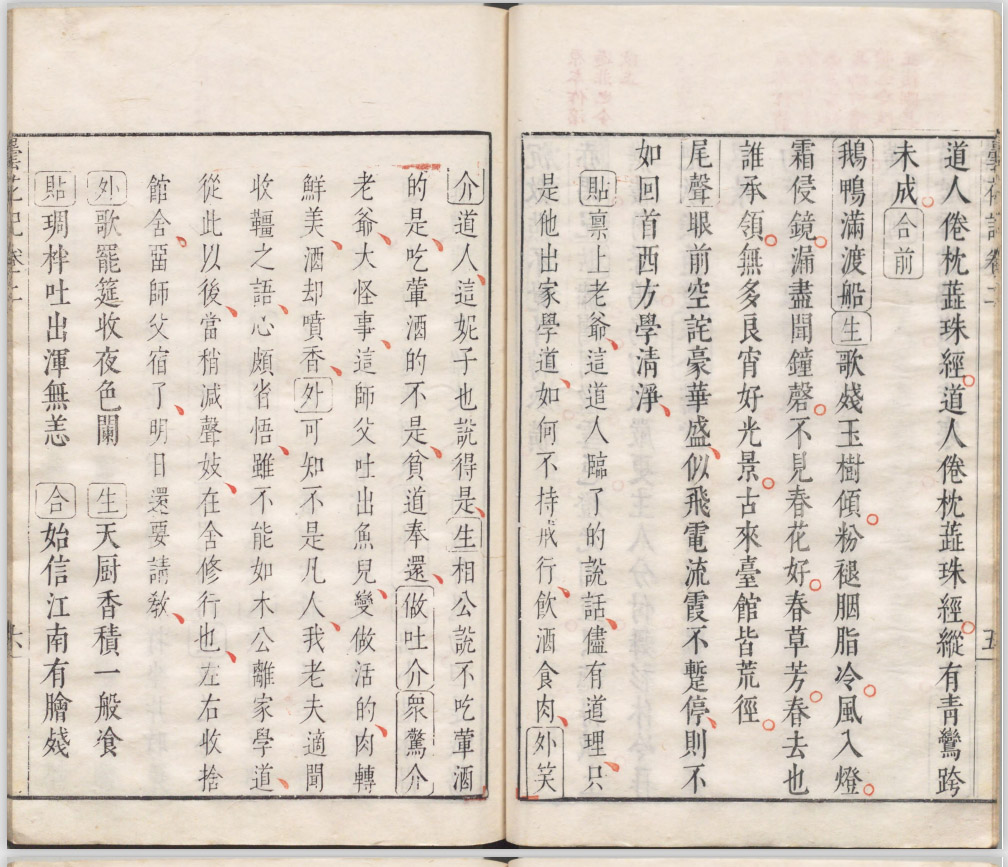 道人倦枕蕋珠經道人倦枕蕋珠經縱有青鸞跨
未成合前
鵝鴨滿渡船生歌殘玉樹傾粉褪胭脂冷風入燈
霜侵鏡漏盡聞鐘磬不見春花好春草芳春去也
誰承領無多良宵好光景古來臺館皆荒徑
尾聲眼前空詫豪華盛似飛電流霞不蹔停則不
如回首西方學清淨
貼禀上老爺這道人臨了的說話儘有道理只
是他出家學道如何不持戒行飲酒食肉外笑
介道人這妮子也說得是生相公說不吃葷酒
的是吃葷酒的不是貧道奉還做吐介衆驚介
老爺大怪事這師父吐出魚兒變做活的肉轉
鮮美酒却噴香外可知不是凡人我老夫適聞
收韁之語心頗省悟雖不能如木公離家學道
從此以後當稍減聲妓在舍修行也左右收捨
館舍畱師父宿了明日還要請敎
外歌罷筵收夜色闌 生天厨香積一般飡
貼琱柈吐出渾無恙 合始信江南有膾殘
曇花記卷二 五
曇花記卷二 六